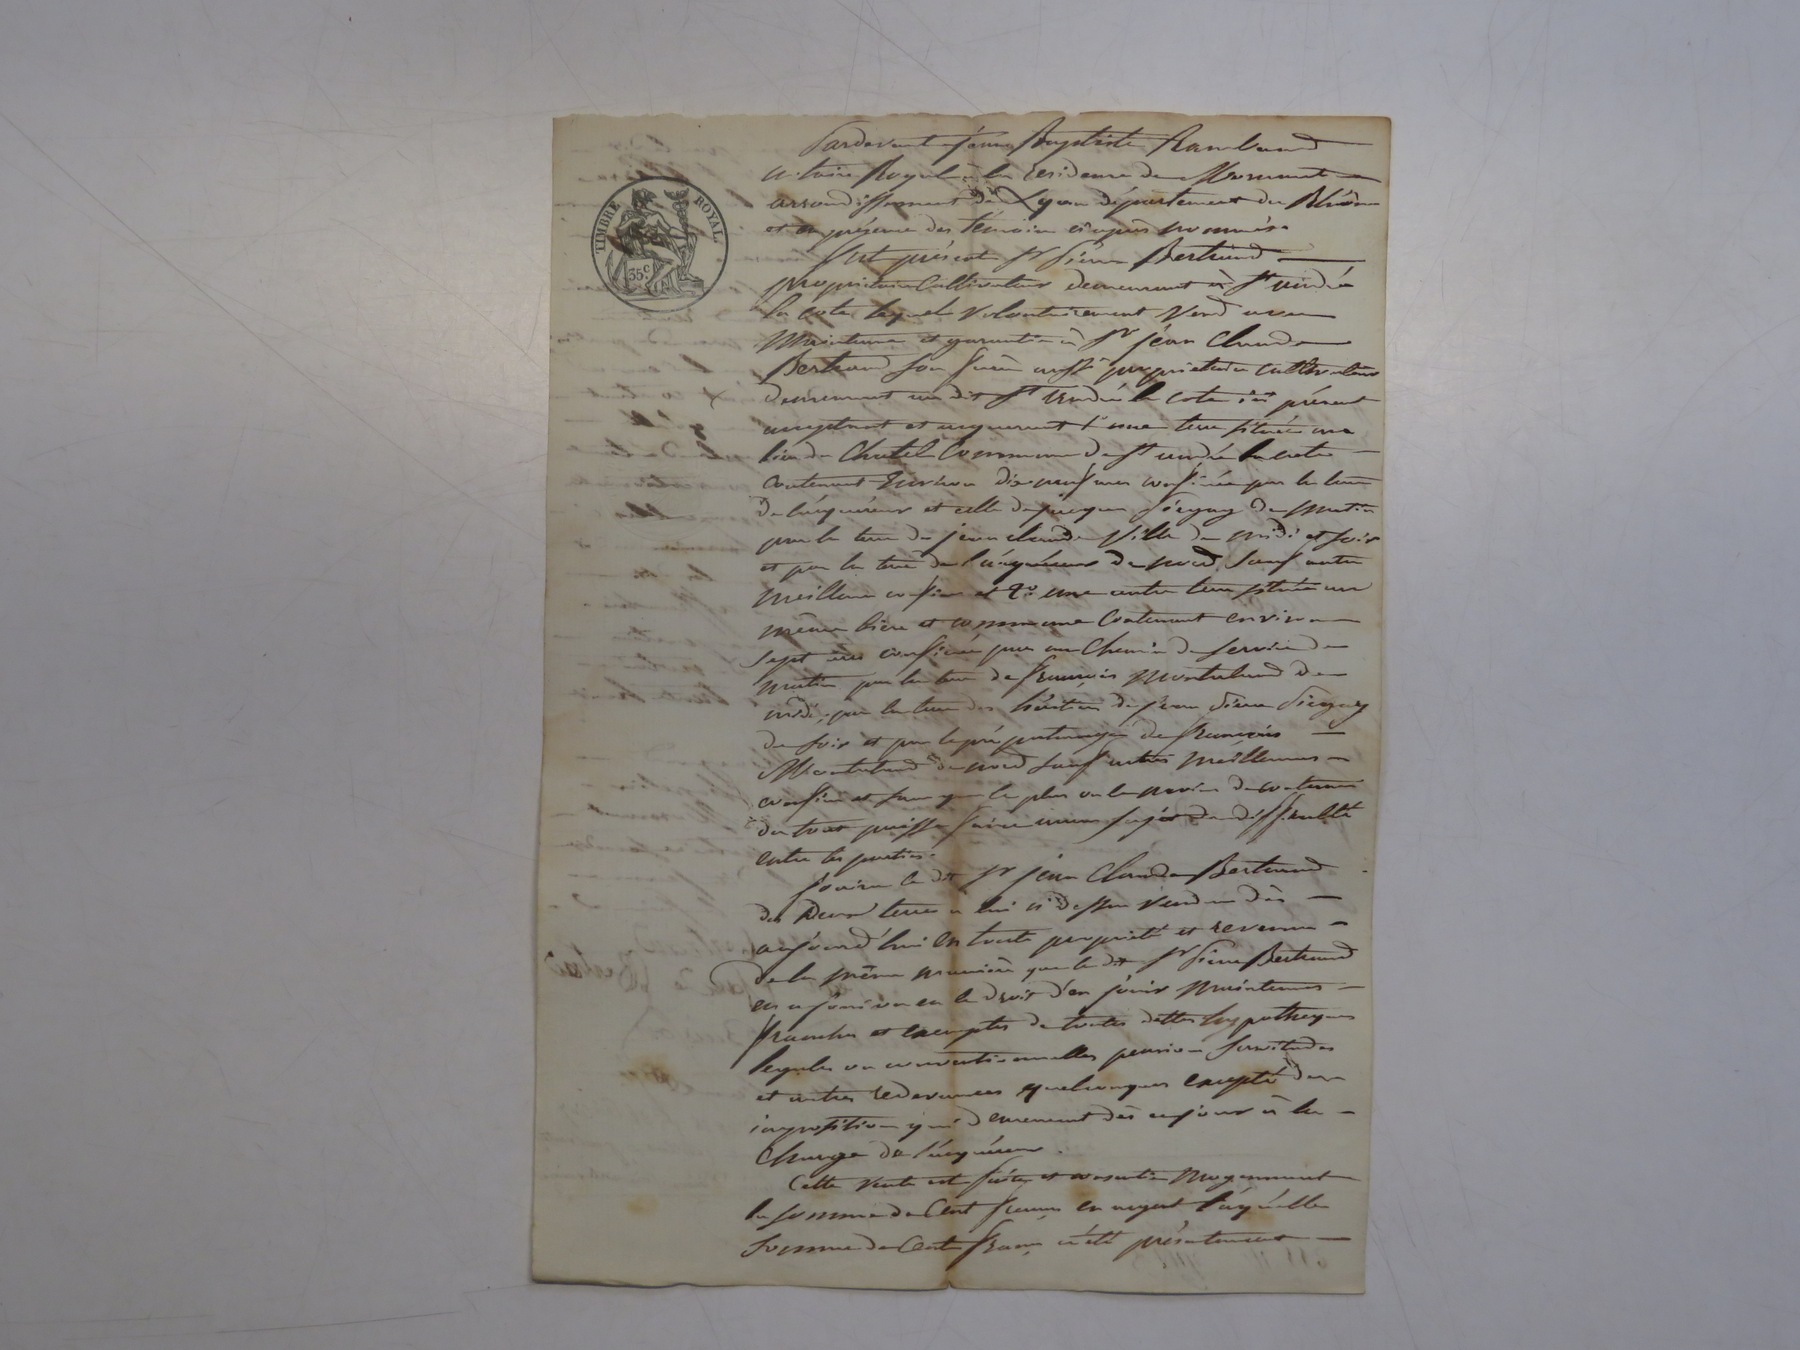 TIMBRE ROYAL.
35 c.
Pardevant Jean Baptiste Rambaud
notaire Royal à la residence de Mornant
arrondissement de Lyon département du Rhône
et en présence des témoins ci après nommés.
Fut présent Sr Pierre Bertrand
propriétaire Cultivateur demeurant à St andré
la cote lequel volontairement vend avec
Maintenue et garantie à Sr jean Claude
Bertrand son frère aussi propriétaire cultivateur
demeurant au dit St andré la cote ici présent
acceptant et acquerant 1° une terre située au
lieu de Chatel Commune de St andré la cote
contenant Environ dix neuf ares confinée par la terre
de l'acquéreur et celle de jacques du matin
par la terre de jean claude Ville de midi et soir
et par la terre de l'acquéreur de nord, sauf autre
meilleurs confins et 2° une autre terre située au
même lieu et commune Contenant environ
sept ares confinée par un Chemin de service de
matin par la terre de françois Montaland de
midi, par la terre des héritiers de jean Pierre
de soir et par le pré paturage de françois
Montaland de nord sauf autres meilleurs
confins et sans que le plus ou le moins de contenu
du tout puisse faire aucun sujet de difficulté
entre les parties.
Jouira le dit Sr jean Claude Bertrand
des Deux terres a lui ci dessus vendues dès
aujourd'hui en toute propriété et revenus
de la même manière que le dit Sr Pierre Bertrand
en a joui ou eu le droit d'en jouir Maintenues
franches et exemptes de toutes dettes hypotheques
legales ou conventionnelles pension servitudes
et autres redevances quelconques excepté des
imposition qui demeurent dès ce jour à la
Charge de l'acquéreur.
Cette vente est faite et consentie Moyennant
la somme de Cent francs en argent laquelle
somme de Cent francs a été présentement